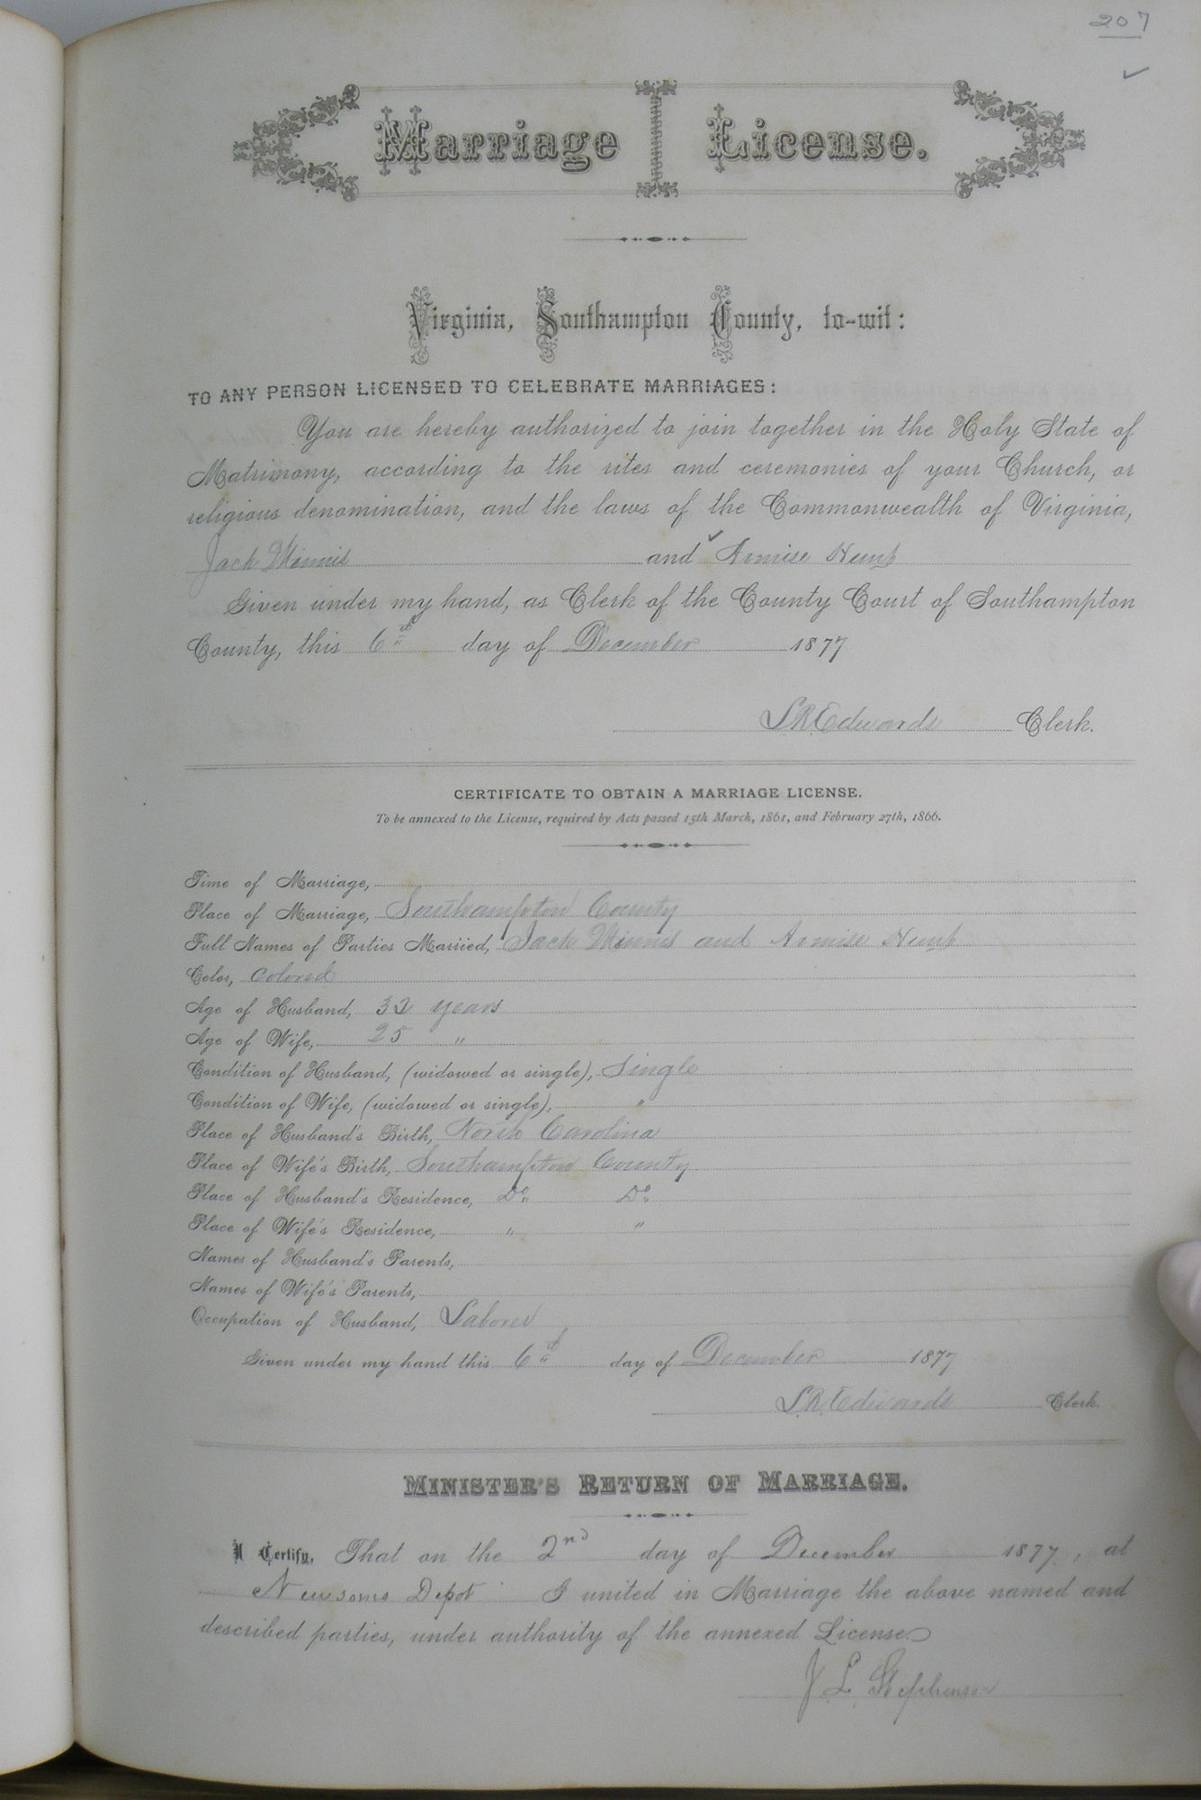 207
Marriage License.
Virginia, Southampton County, to-wit:
TO ANY PERSON LICENSED TO CELEBRATE MARRIAGES:
You are hereby authorized to join together in the Holy State of
Matrimony, according to the rites and ceremonies of your Church, or
religious denomination, and the laws of the Commonwealth of Virginia,
Jack Minnis and Armise
Given under my hand, as Clerk of the County Court of Southampton
County, this 6th day of December 1877
L.R. Edwards Clerk.
CERTIFICATE TO OBTAIN A MARRIAGE LICENSE.
To be annexed to the License, required by Acts passed 15th March, 1861, and February 27th, 1866.
Time of Marriage,
Place of Marriage, Southampton County
Full Names of Parties Married, Jack Minnis and Armise
Color, Colored
Age of Husband, 32 years
Age of Wife, 25 "
Condition of Husband, (widowed or single), Single
Condition of Wife, (widowed or single), "
Place of Husband's Birth, North Carolina
Place of Wife's Birth, Southampton County
Place of Husband's Residence, Do Do
Place of Wife's Residence, " "
Names of Husband's Parents,
Names of Wife's Parents,
Occupation of Husband, Laborer
Given under my hand this 6th day of December 1877
L.R. Edwards Clerk.
MINISTER'S RETURN OF MARRIAGE.
I Certify, That on the 2nd day of December 1877, at
Newsoms Depot I united in Marriage the above named and
described parties, under authority of the annexed License.
J L Stephenson